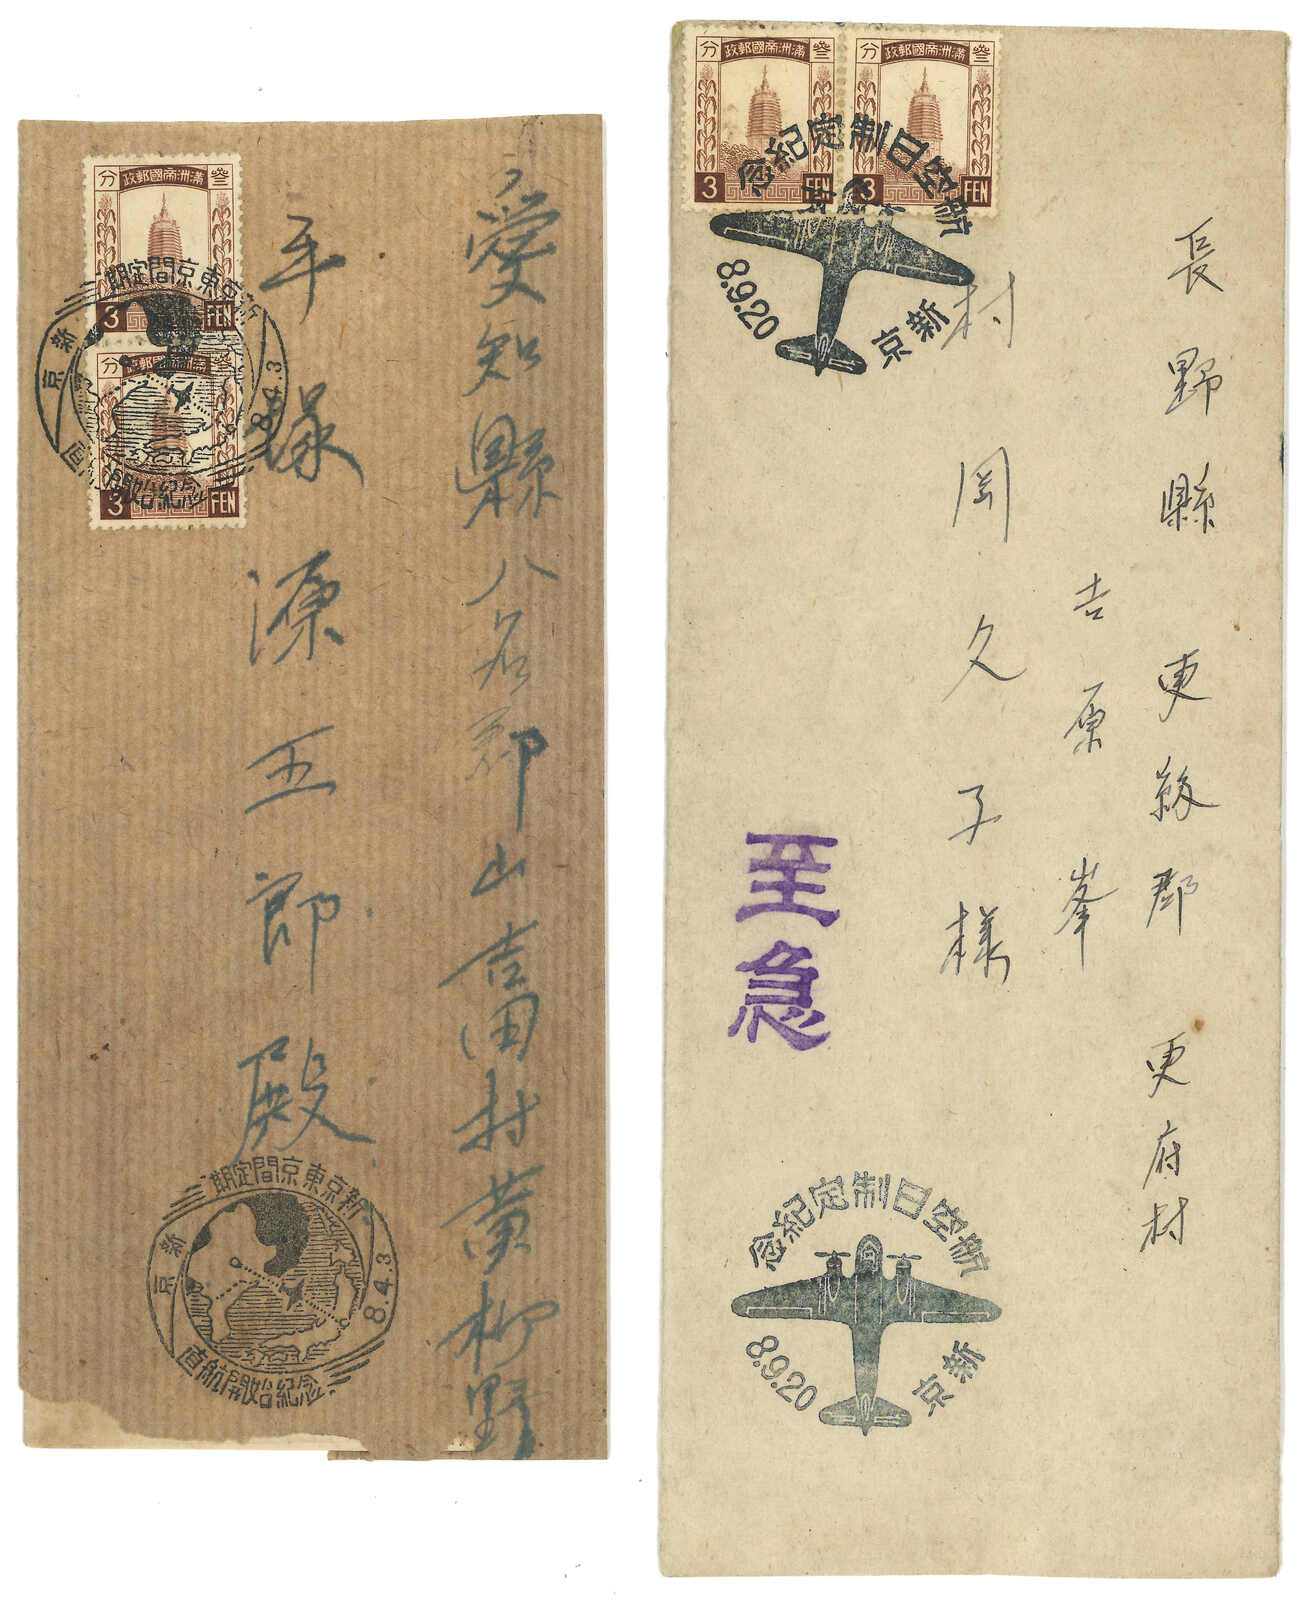 分 政郵國帝洲滿 叁
3 FEN
分 政郵國帝洲滿 叁
3 FEN
新京東京間定期
直航開始紀念
新京
8.4.3
愛知縣八名郡山吉田村黄柳野
平塚源五郎殿
新京東京間定期
直航開始紀念
新京
8.4.3
分 政郵國帝洲滿 叁
3 FEN
分 政郵國帝洲滿 叁
3 FEN
航空日制定紀念
新京
8.9.20
長野縣 更級郡 更府村
吉原 峯
村岡久子様
至急
航空日制定紀念
新京
8.9.20